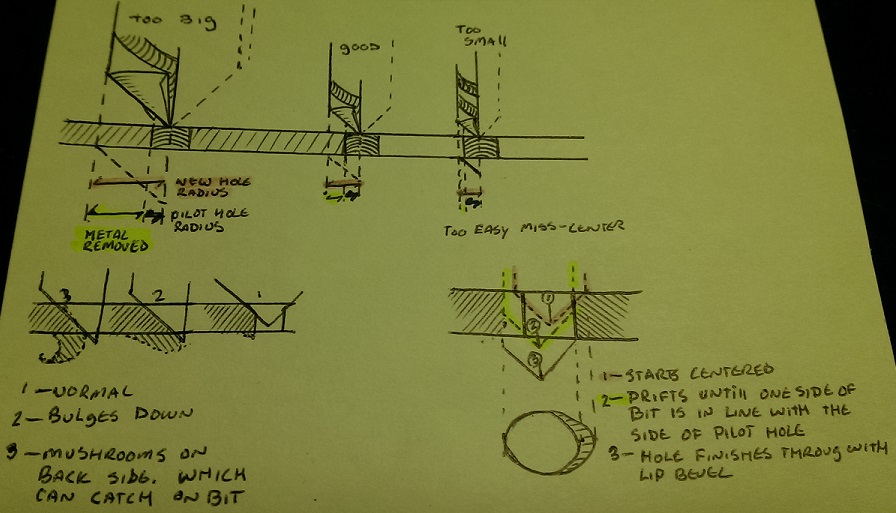 TOO BIG
GOOD
TOO
SMALL
NEW HOLE
RADIUS
PILOT HOLE
RADIUS
METAL
REMOVED
TOO EASY MISS-CENTER
3
2
1
1 - NORMAL
2 - BULGES DOWN
3 - MUSHROOMS ON
BACK SIDE. WHICH
CAN CATCH ON BIT
1
2
3
1 - STARTS CENTERED
2 - DRIFTS UNTILL ONE SIDE OF
BIT IS IN LINE WITH THE
SIDE OF PILOT HOLE
3 - HOLE FINISHES THROUG WITH
LIP BEVEL